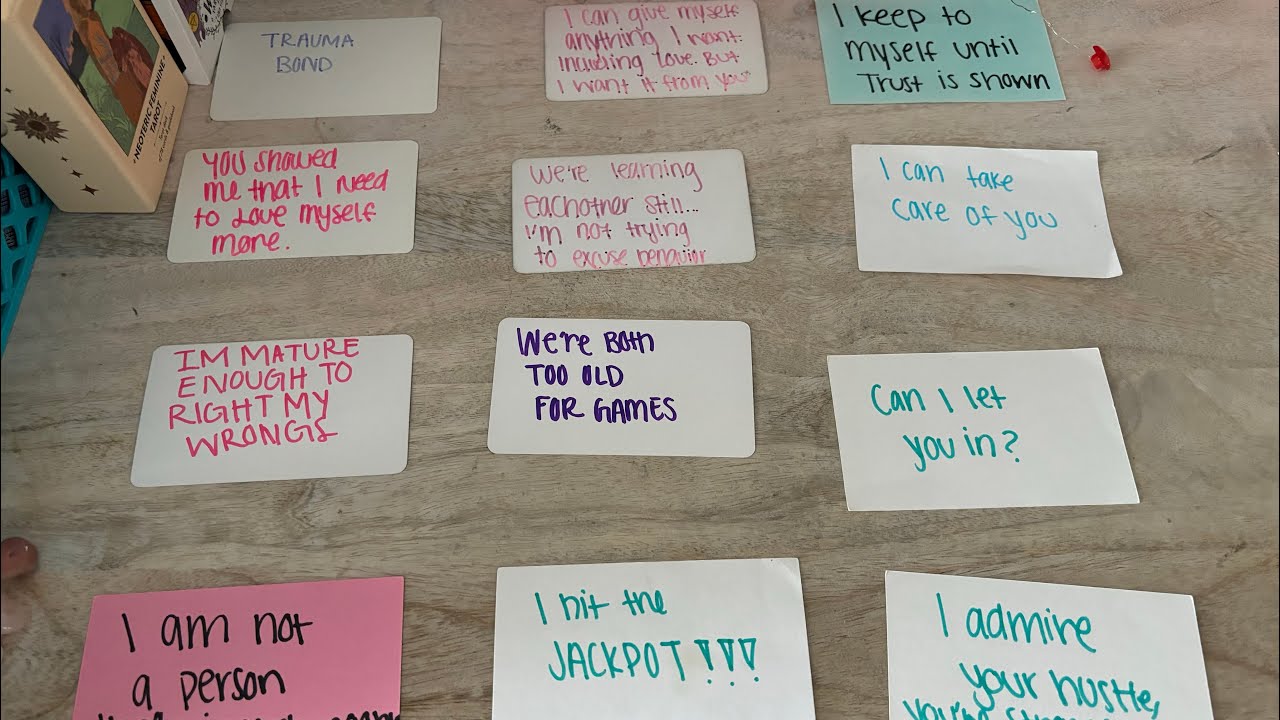 NEOTERIC FEMININE
TAROT
TRAUMA
BOND
I can give myself
anything I want.
Including love. But
I want it from you
I keep to
myself until
Trust is shown
YOU showed
me that I need
to Love myself
more.
We're learning
eachother still...
I'm not trying
to excuse behavior
I can take
care of you
IM MATURE
ENOUGH TO
RIGHT MY
WRONGS
We're Both
TOO OLD
FOR GAMES
Can I let
you in?
I am not
a person
I hit the
JACKPOT!!!
I admire
your hustle,